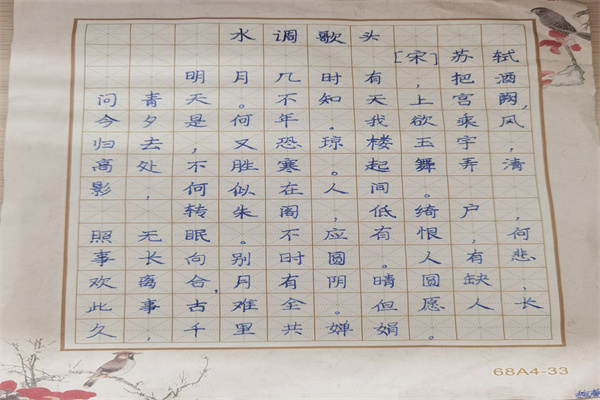 水调歌头
[宋]苏轼
明月几时有,把酒
问青天。不知天上宫阙,
今夕是何年。我欲乘风,
归去,又恐琼楼玉宇
高处不胜寒。起舞弄清
影,何似在人间。
转朱阁,低绮户,
照无眠。不应有恨,何
事长向别时圆。人有悲
欢离合,月有阴晴圆缺,
此事古难全。但愿人长
久,千里共婵娟。
68A4-33